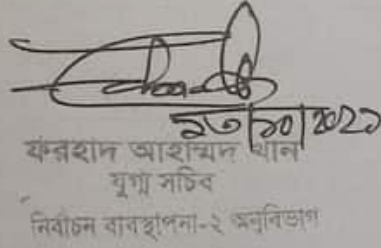 ২৩/১০/২০২১
ফরহাদ আহাম্মদ খান
যুগ্ম সচিব
নির্বাচন ব্যবস্থাপনা-২ অনুবিভাগ